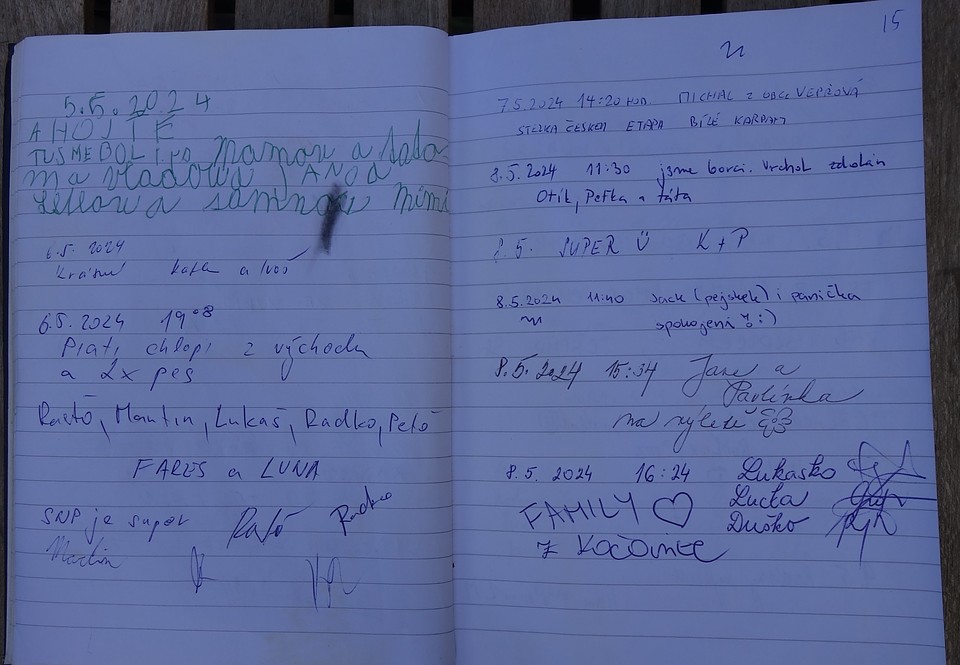 5.5.2024
AHOJTE
TU SME BOLI so mamou a tato
ma vladova JANO a
a mimi
6.5. 2024
Krásné kata a
6.5.2024 19:08
Piati chlapi z východu
a 2x pes
Rastő, Martin, Lukáš, Radko, Peťo
FARES a LUNA
SNP je super Rasťo Radko
Martin
15
7.5.2024 14:20 HOD. MICHAL Z OBCE VEPŘOVÁ
STEZKA ČESKEM ETAPA BÍLÉ KARPATY
8.5.2024 11:30 jsme borci. Vrchol zdolán
Otík, Peťka a táta
8.5. SUPER Ü K+P
8.5.2024 11:40 Jack (pejsek) i panička
spokojeni :)
8.5.2024 15:34 Jane a
Pavlínka
na výletě
8.5. 2024 16:24 Lukasko
FAMILY ♡ Lucka
Duško
z Kočoviec